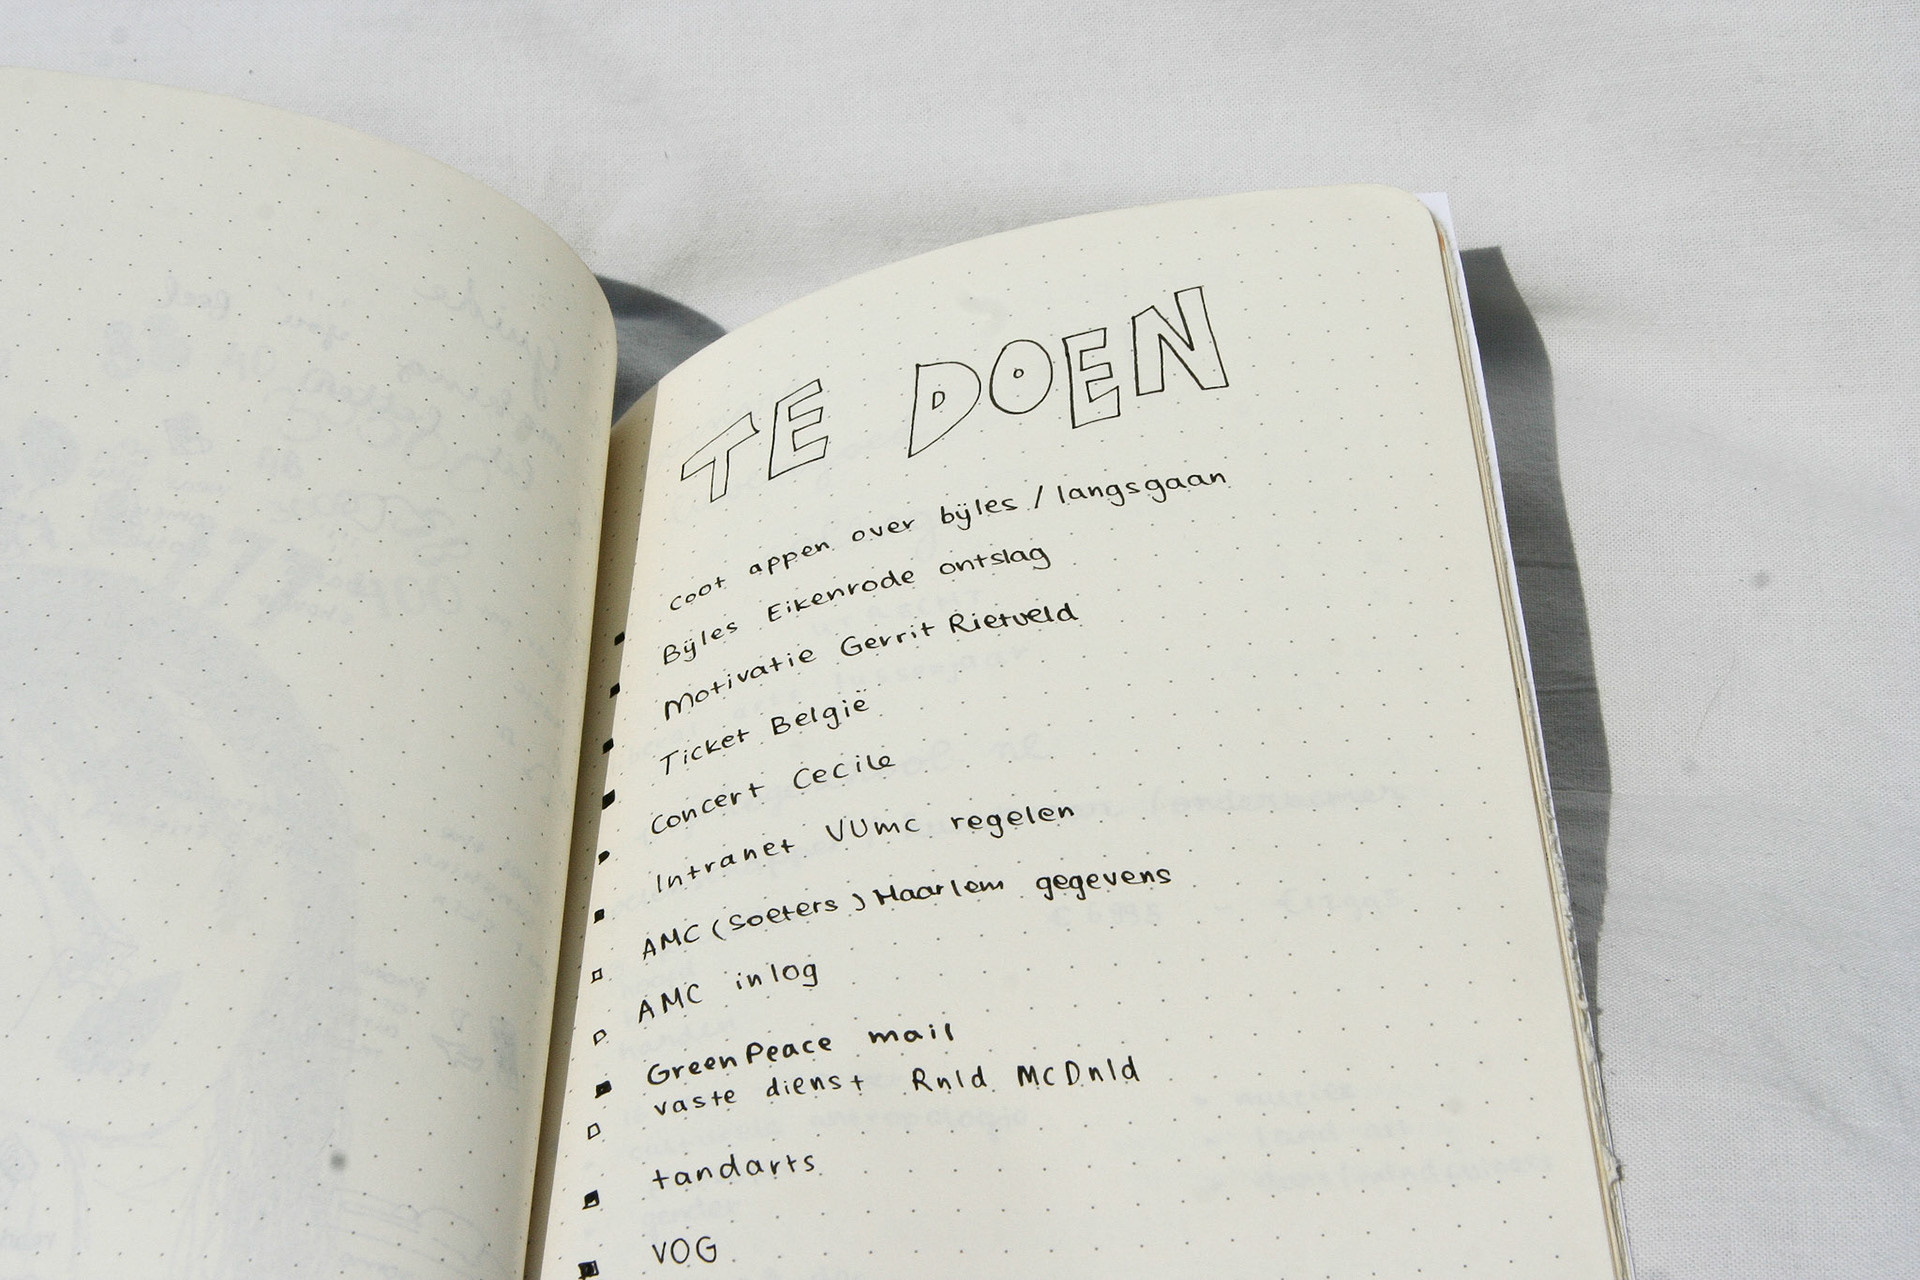 TE DOEN
coot appen over bijles / langsgaan
Bijles Eikenrode ontslag
Motivatie Gerrit Rietveld
Ticket België
concert Cecile
Intranet VUmc regelen
AMC (Soeters) Haarlem gegevens
AMC inlog
GreenPeace mail
vaste dienst Rnld McDnld
tandarts
VOG